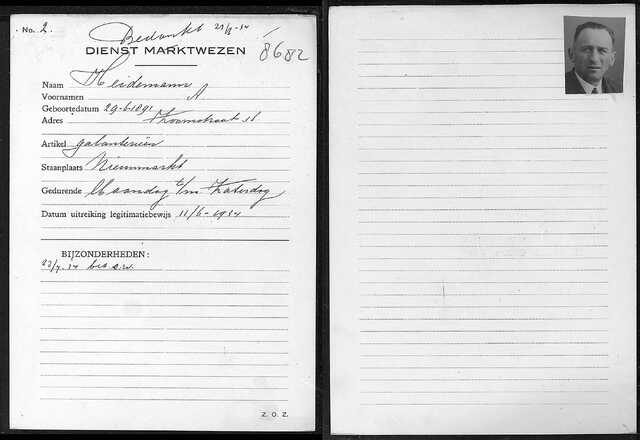 No. 2. Bedankt 21/8-34
DIENST MARKTWEZEN 8682
Naam Heidemann
Voornamen A
Geboortedatum 29-6-1091
Adres
Artikel galanterieën
Staanplaats Nieuwmarkt
Gedurende Maandag t/m Zaterdag
Datum uitreiking legitimatiebewijs 11/6-1934
BIJZONDERHEDEN:
23/7.34
Z. O. Z.